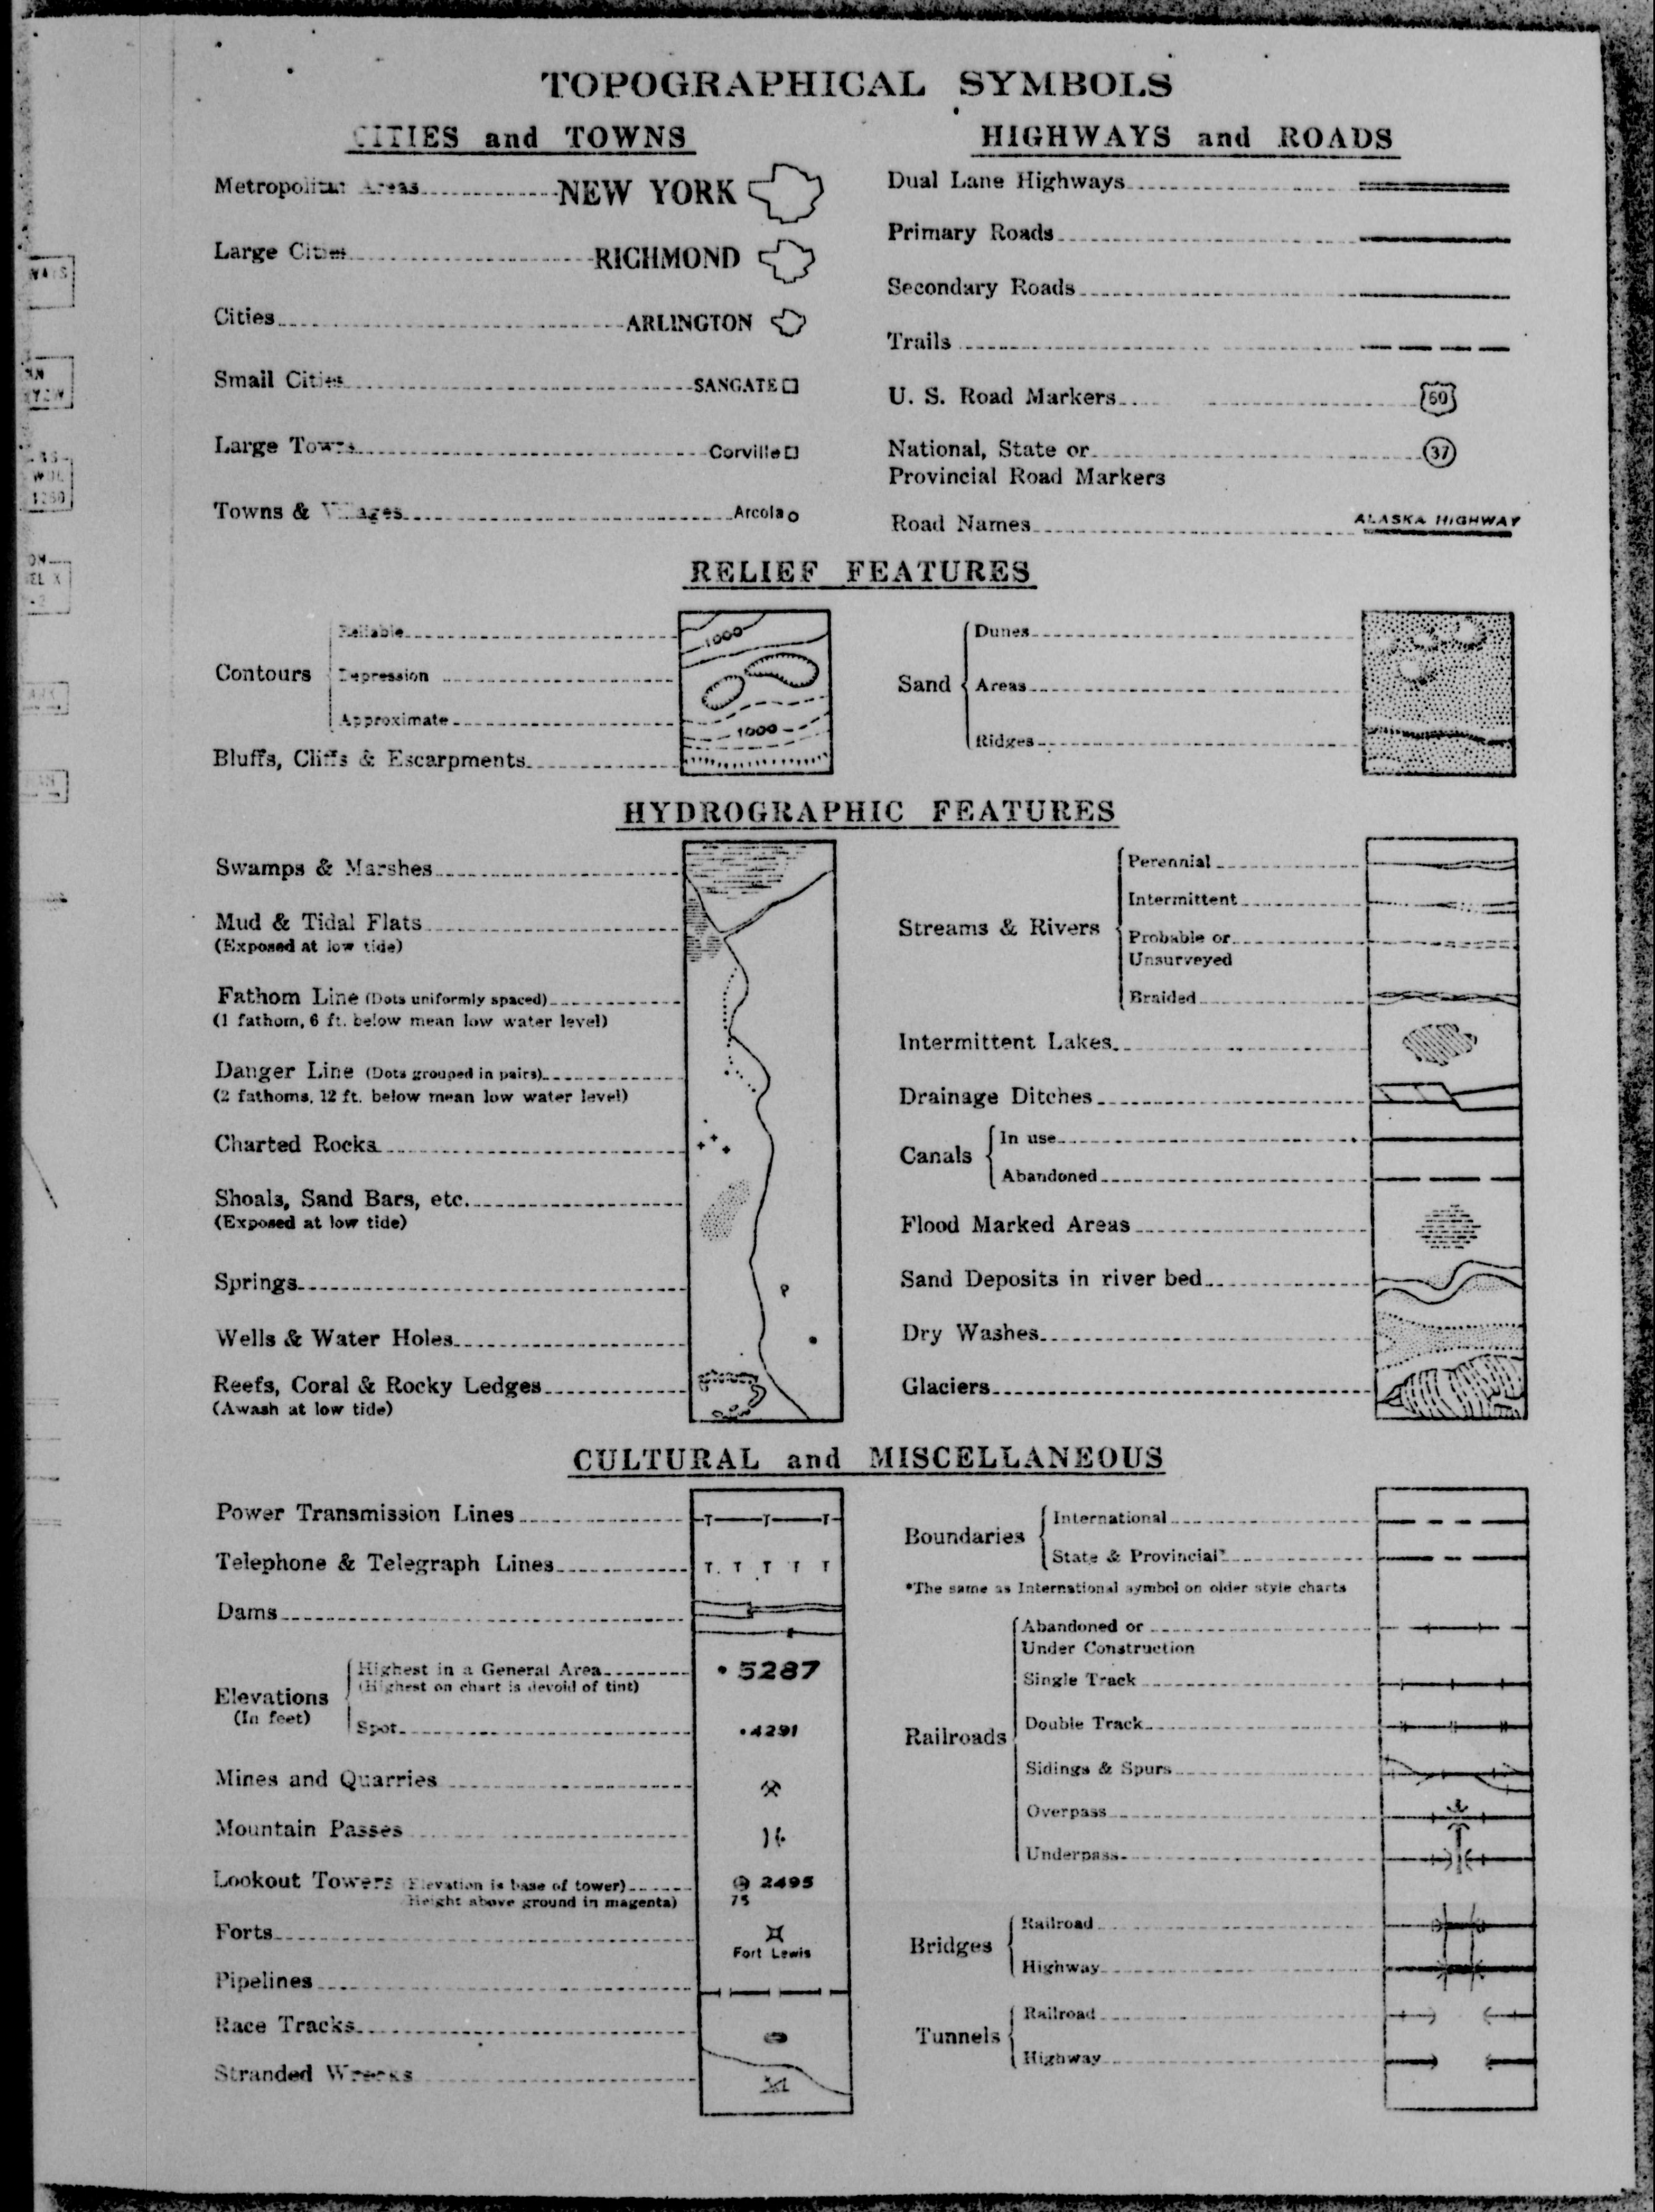 TOPOGRAPHICAL SYMBOLS
CITIES and TOWNS
Metropolitan Areas NEW YORK
Large Cities RICHMOND
Cities ARLINGTON
Small Cities SANGATE
Large Towns Corville
Towns & Villages Arcola
HIGHWAYS and ROADS
Dual Lane Highways
Primary Roads
Secondary Roads
Trails
U. S. Road Markers 60
National, State or 37
Provincial Road Markers
Road Names ALASKA HIGHWAY
RELIEF FEATURES
Contours
Reliable 1000
Depression
Approximate 1000
Bluffs, Cliffs & Escarpments
Sand
Dunes
Areas
Ridges
HYDROGRAPHIC FEATURES
Swamps & Marshes
Mud & Tidal Flats
(Exposed at low tide)
Fathom Line (Dots uniformly spaced)
(1 fathom, 6 ft. below mean low water level)
Danger Line (Dots grouped in pairs)
(2 fathoms, 12 ft. below mean low water level)
Charted Rocks
Shoals, Sand Bars, etc.
(Exposed at low tide)
Springs
Wells & Water Holes
Reefs, Coral & Rocky Ledges
(Awash at low tide)
Streams & Rivers
Perennial
Intermittent
Probable or
Unsurveyed
Braided
Intermittent Lakes
Drainage Ditches
Canals
In use
Abandoned
Flood Marked Areas
Sand Deposits in river bed
Dry Washes
Glaciers
CULTURAL and MISCELLANEOUS
Power Transmission Lines
Telephone & Telegraph Lines
Dams
Elevations
(In feet)
Highest in a General Area 5287
(Highest on chart is devoid of tint)
Spot 4291
Mines and Quarries
Mountain Passes
Lookout Towers (Elevation is base of tower) 2495
Height above ground in magenta) 75
Forts
Fort Lewis
Pipelines
Race Tracks
Stranded Wrecks
Boundaries
International
State & Provincial*
*The same as International symbol on older style charts
Railroads
Abandoned or
Under Construction
Single Track
Double Track
Sidings & Spurs
Overpass
Underpass
Bridges
Railroad
Highway
Tunnels
Railroad
Highway